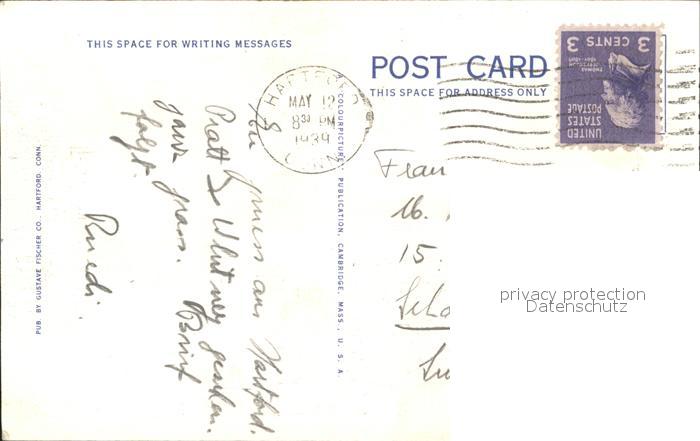 THIS SPACE FOR WRITING MESSAGES
POST CARD
THIS SPACE FOR ADDRESS ONLY
HARTFORD
MAY 12
8 30 PM
1939
CONN.
UNITED
STATES
POSTAGE
THOMAS
JEFFERSON
3 CENTS 3
PUB. BY GUSTAVE FISCHER CO., HARTFORD, CONN.
"COLOURPICTURE" PUBLICATION, CAMBRIDGE, MASS., U. S. A.
Gruss aus Hartford.
Pratt & Whitney gesehen.
ganz gross. Brief
folgt.
Ruedi.
Frau
16.
15.
privacy protection
Datenschutz